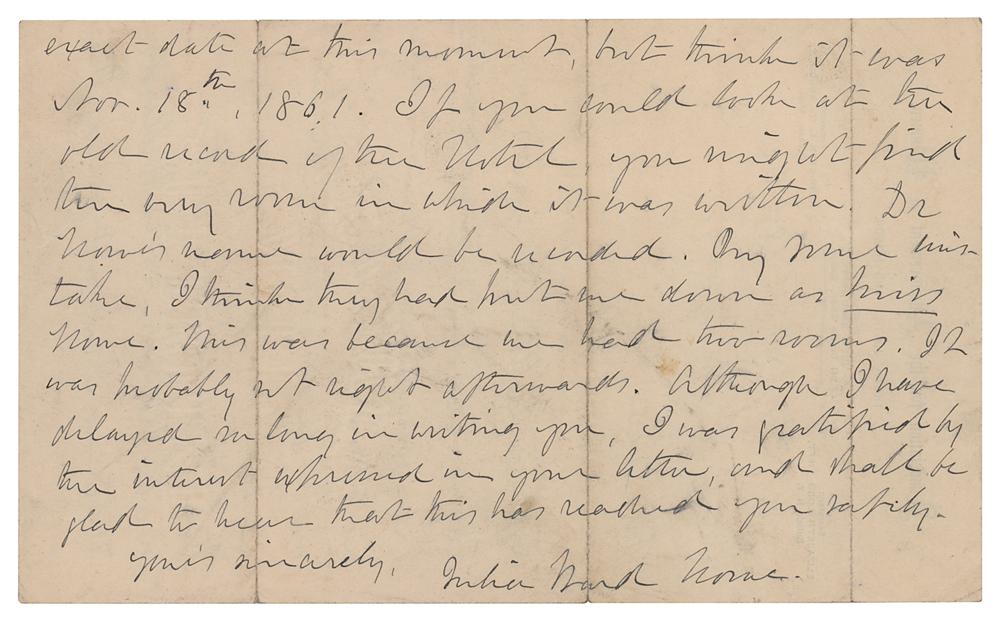 exact date at this moment, but think it was
Nov. 18th, 1861. If you could look at the
old record of the Hotel, you might find
the very room in which it was written. Dr
Howe's name would be recorded. By some mis-
take, I think they had put me down as Miss
Howe. This was because we had two rooms. It
was probably set right afterwards. Although I have
delayed so long in writing you, I was gratified by
the interest expressed in your letter, and shall be
glad to hear that this has reached you safely.
yours sincerely,
Julia Ward Howe.